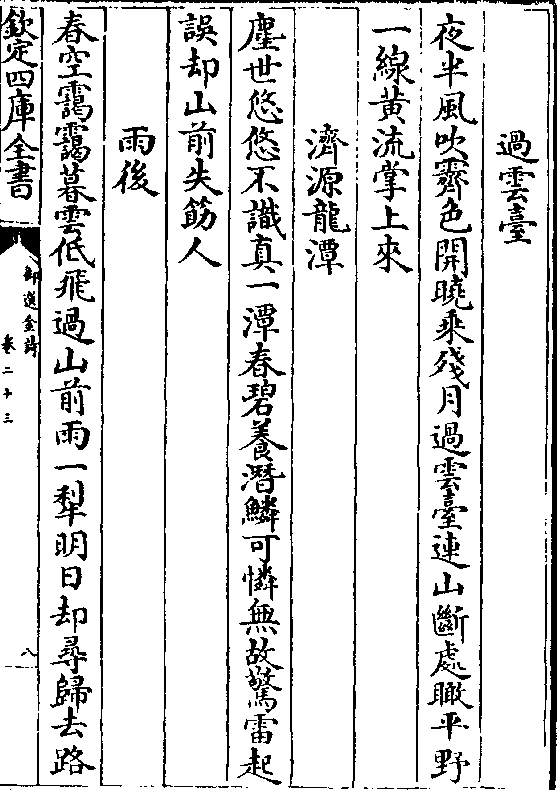 過雲臺
夜半風吹霽色開曉乘殘月過雲臺連山斷處瞰平野
一線黃流掌上來
濟源龍潭
塵世悠悠不識真一潭春碧養潛鱗可憐無故驚雷起
誤却山前失筯人
雨後
春空靄靄暮雲低飛過山前雨一犂明日却尋歸去路
欽定四庫全書
御選金詩
卷二十三
八